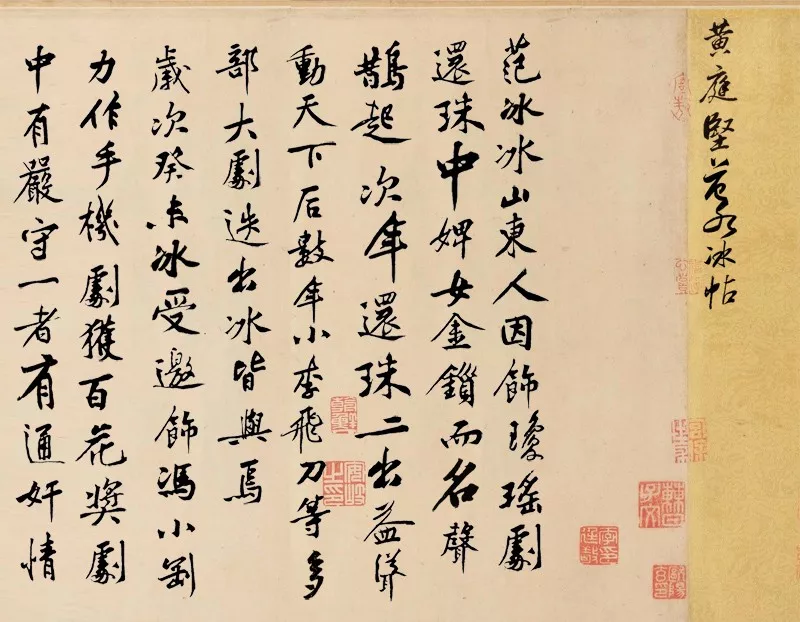 黄庭堅范冰冰帖
范冰冰山東人因飾瓊瑤劇
還珠中婢女金鎖而名聲
鵲起次年還珠二出益聳
動天下后數年小李飛刀等多
部大劇迭出冰皆與焉
歲次癸未冰受邀飾馮小剛
力作手機劇獲百花獎劇
中有嚴守一者有通奸情